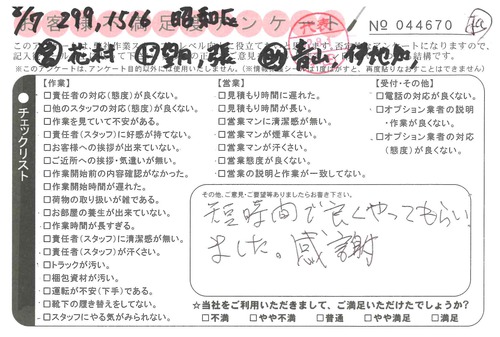 8/7 299,1516 昭和区
お客様満足度アンケート
代表
No 044670
※このアンケートは、アンケート目的以外には使用いたしません。
チェックリスト
【作業】
□責任者の対応(態度)が良くない。
□他のスタッフの対応(態度)が良くない。
□作業を見ていて不安がある。
□責任者(スタッフ)に好感が持てない。
□お客様への挨拶が出来ていない。
□ご近所への挨拶・気遣いが無い。
□作業開始前の内容確認がなかった。
□作業開始時間が遅れた。
□荷物の取り扱いが雑である。
□お部屋の養生が出来ていない。
□作業時間が長すぎる。
□責任者(スタッフ)に清潔感が無い。
□責任者(スタッフ)が汗くさい。
□トラックが汚い。
□梱包資材が汚い。
□運転が不安(下手)である。
□靴下の履き替えをしてない。
□スタッフにやる気がみられない。
【営業】
□見積もり時間に遅れた。
□見積もり時間が長い。
□営業マンに清潔感が無い。
□営業マンが煙草くさい。
□営業マンが汗くさい。
□営業態度が良くない。
□営業の説明と作業が一致してない。
【受付・その他】
□電話の対応が良くない。
□オプション業者の説明・作業が良くない。
□オプション業者の対応(態度)が良くない。
その他、ご意見・ご要望等ありましたらお書き下さい。
短時間で良くやってもらい
ました。感謝
☆当社をご利用いただきまして、ご満足いただけたでしょうか?
□不満 □やや不満 □普通 □やや満足 □満足